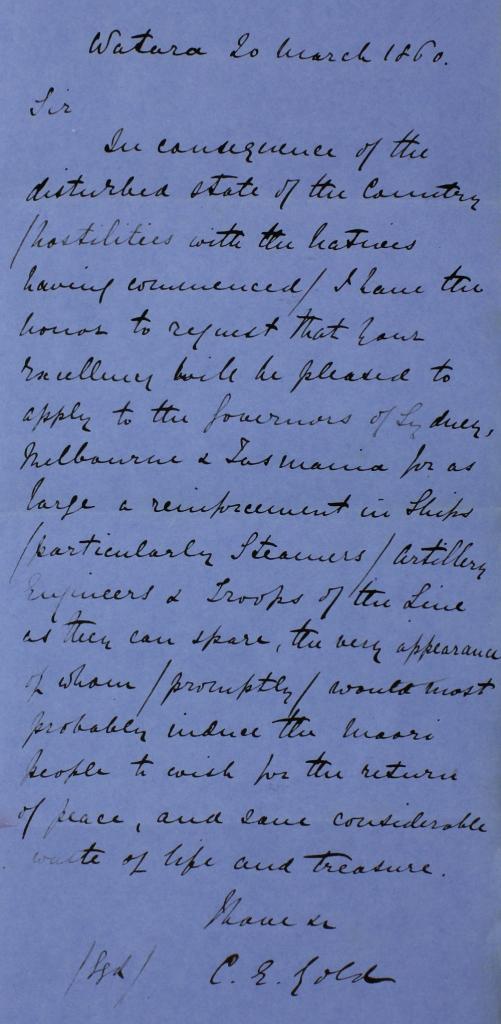 Watara 20 March 1860.
Sir
In consequence of the
disturbed state of the Country
/hostilities with the Natives
having commenced/ I have the
honor to request that Your
Excellency will be pleased to
apply to the Governors of Sydney,
Melbourne & Tasmania for as
large a reinforcement in Ships
/particularly Steamers/ Artillery
Engineers & Troops of the Line
as they can spare, the very appearance
of whom /promptly/ would most
probably induce the Maori
people to wish for the return
of peace, and save considerable
waste of life and treasure.
I have &c
/Sgd/ C. E. Gold